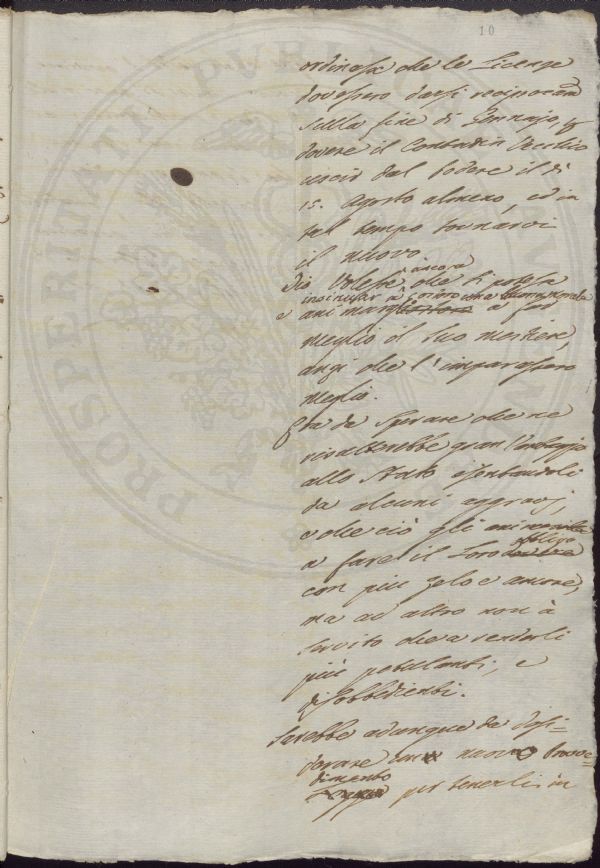 10
ordinasse che le Licenze
dovessero darsi reciprocam
sulla fine di Gennajo, e
dovere il Contadin Vecchio
uscir dal Podere il dì
15. Agosto almeno, ed in
tal tempo tornarvi
il nuovo
Dio Volesse ancora che si potesse
insinuar a
e animarli a far
meglio il suo mestiere,
anzi che l'imparassero
meglio.
Era da Sperare che ne
risulterebbe gran Vantaggio
allo Stato esentandoli
da alcuni aggravj,
e che ciò gli
a fare il Loro offizio
con più zelo e amore,
ma ad altro non à
servito che a renderli
più petulanti, e
disobbedienti.
Sarebbe adunque da desi=
derare un nuovo Provve=
dimento
per tenerli in
PROSPERITATI PVBLICAE